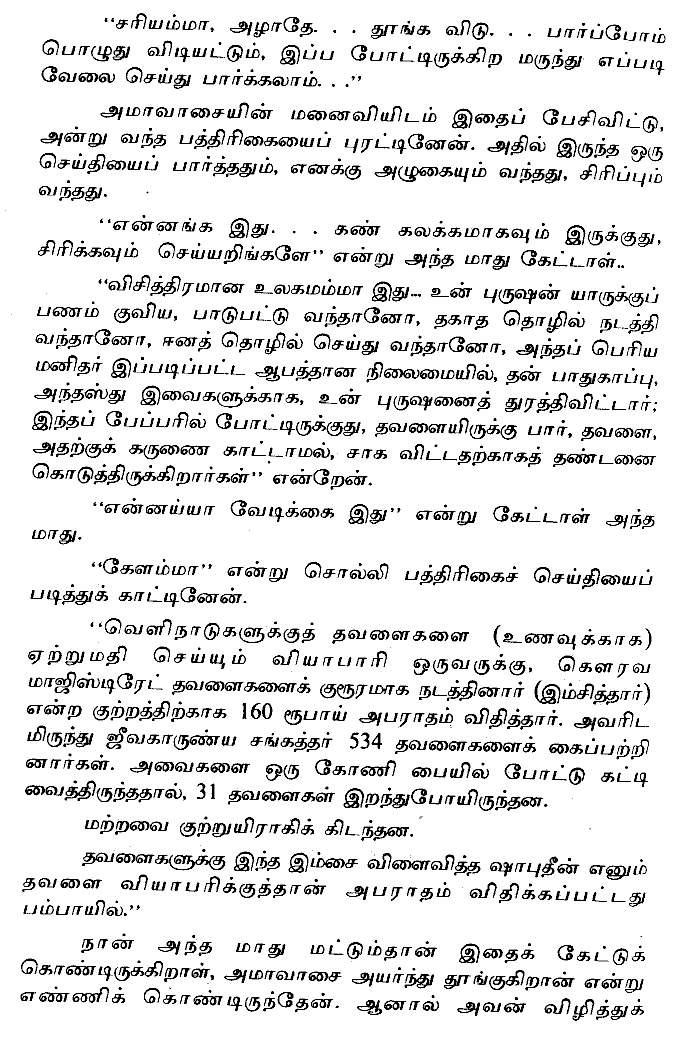 “சரியம்மா, அழாதே. . . தூங்க விடு. . . பார்ப்போம்
பொழுது விடியட்டும், இப்ப போட்டிருக்கிற மருந்து எப்படி
வேலை செய்து பார்க்கலாம். . .”
அமாவாசையின் மனைவியிடம் இதைப் பேசிவிட்டு,
அன்று வந்த பத்திரிகையைப் புரட்டினேன். அதில் இருந்த ஒரு
செய்தியைப் பார்த்ததும், எனக்கு அழுகையும் வந்தது, சிரிப்பும்
வந்தது.
“என்னங்க இது. . . கண் கலக்கமாகவும் இருக்குது,
சிரிக்கவும் செய்யறிங்களே” என்று அந்த மாது கேட்டாள்..
“விசித்திரமான உலகமம்மா இது... உன் புருஷன் யாருக்குப்
பணம் குவிய, பாடுபட்டு வந்தானோ, தகாத தொழில் நடத்தி
வந்தானோ, ஈனத் தொழில் செய்து வந்தானோ, அந்தப் பெரிய
மனிதர் இப்படிப்பட்ட ஆபத்தான நிலைமையில், தன் பாதுகாப்பு,
அந்தஸ்து இவைகளுக்காக, உன் புருஷனைத் துரத்திவிட்டார்;
இந்தப் பேப்பரில் போட்டிருக்குது, தவளையிருக்கு பார், தவளை,
அதற்குக் கருணை காட்டாமல், சாக விட்டதற்காகத் தண்டனை
கொடுத்திருக்கிறார்கள்” என்றேன்.
“என்னய்யா வேடிக்கை இது” என்று கேட்டாள் அந்த
மாது.
“கேளம்மா” என்று சொல்லி பத்திரிகைச் செய்தியைப்
படித்துக் காட்டினேன்.
“வெளிநாடுகளுக்குத் தவளைகளை (உணவுக்காக)
ஏற்றுமதி செய்யும் வியாபாரி ஒருவருக்கு, கௌரவ
மாஜிஸ்டிரேட் தவளைகளைக் குரூரமாக நடத்தினார் (இம்சித்தார்)
என்ற குற்றத்திற்காக 160 ரூபாய் அபராதம் விதித்தார். அவரிட
மிருந்து ஜீவகாருண்ய சங்கத்தர் 534 தவளைகளைக் கைப்பற்றி
னார்கள். அவைகளை ஒரு கோணி பையில் போட்டு கட்டி
வைத்திருந்ததால், 31 தவளைகள் இறந்துபோயிருந்தன.
மற்றவை குற்றுயிராகிக் கிடந்தன.
தவளைகளுக்கு இந்த இம்சை விளைவித்த ஷாபுதீன் எனும்
தவளை வியாபரிக்குத்தான் அபராதம் விதிக்கப்பட்டது
பம்பாயில்.”
நான் அந்த மாது மட்டும்தான் இதைக் கேட்டுக்
கொண்டிருக்கிறாள், அமாவாசை அயர்ந்து தூங்குகிறான் என்று
எண்ணிக் கொண்டிருந்தேன். ஆனால் அவன் விழித்துக்